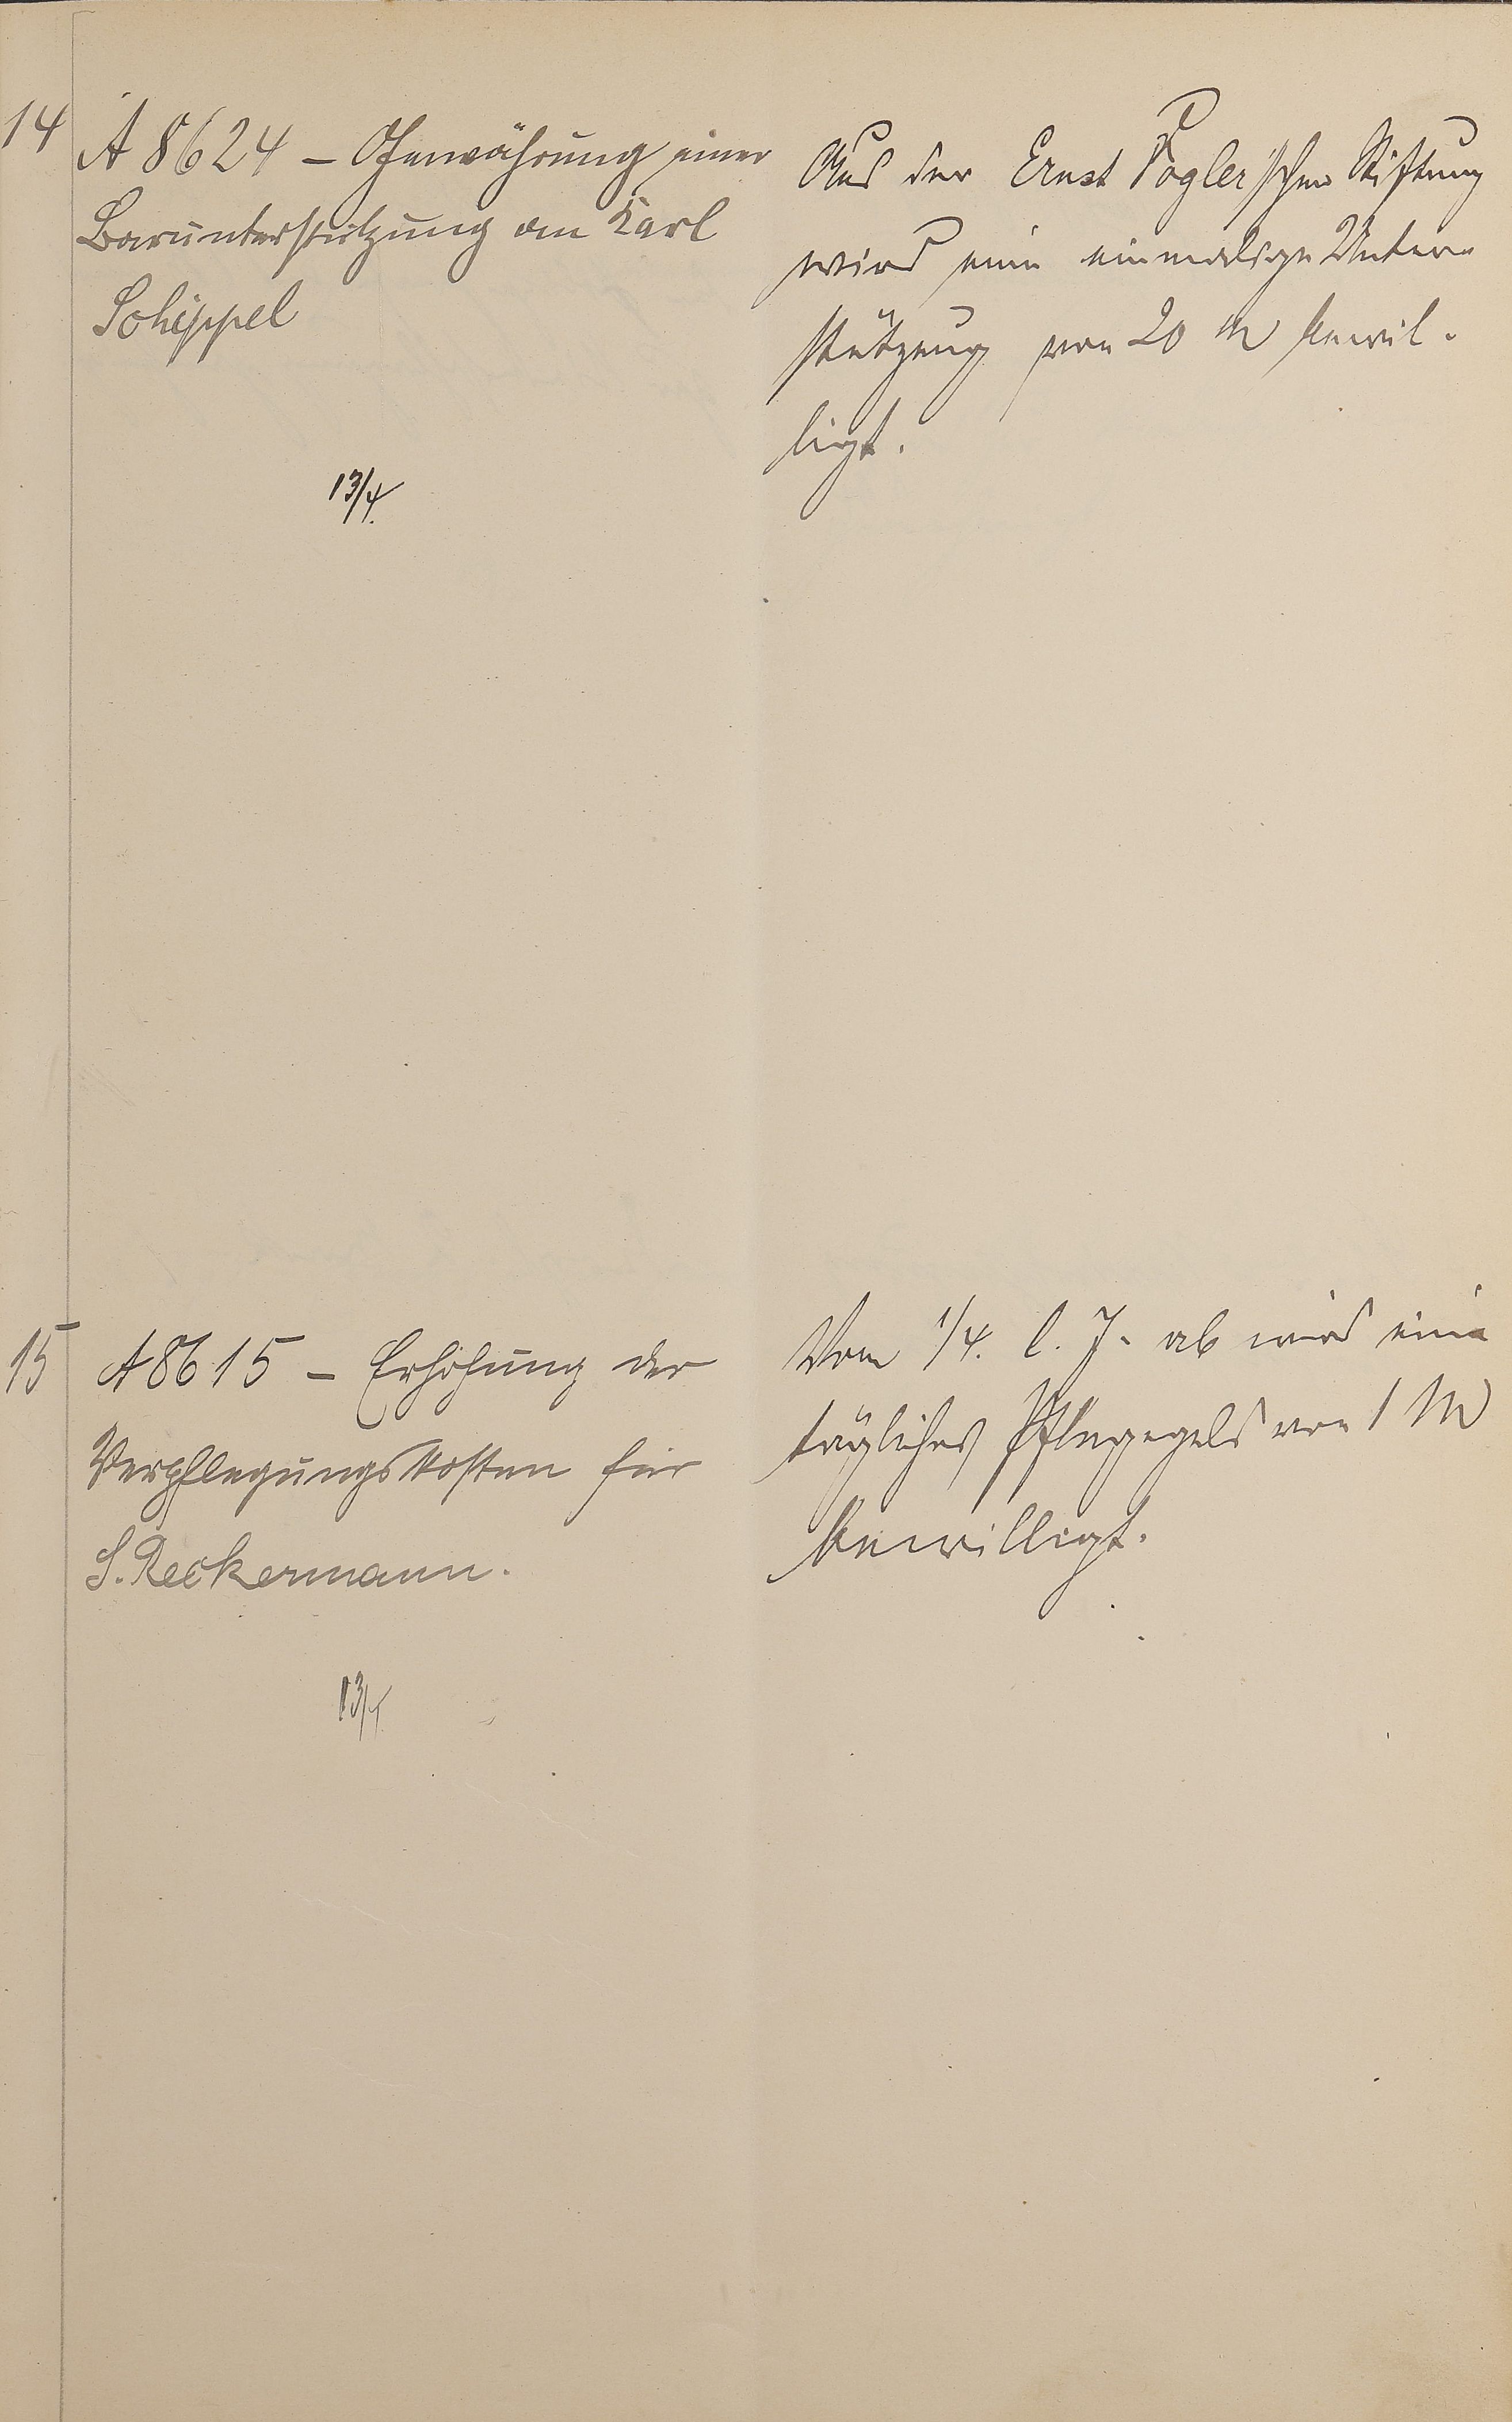 14
A 8624 - Gewährung einer
Barunterstützung an Karl
Schippel
13/4.
Aus der Ernst Pogler'schen Stiftung
wird eine einmalige Unter-
stützung von 20 M bewil-
ligt.
15
A 8615 - Erhöhung der
Verpflegungskosten für
S. Reckermann.
13/4.
Vom 1/4. l. J. ab wird eine
tägliches Pflegegeld von 1 M
bewilligt.